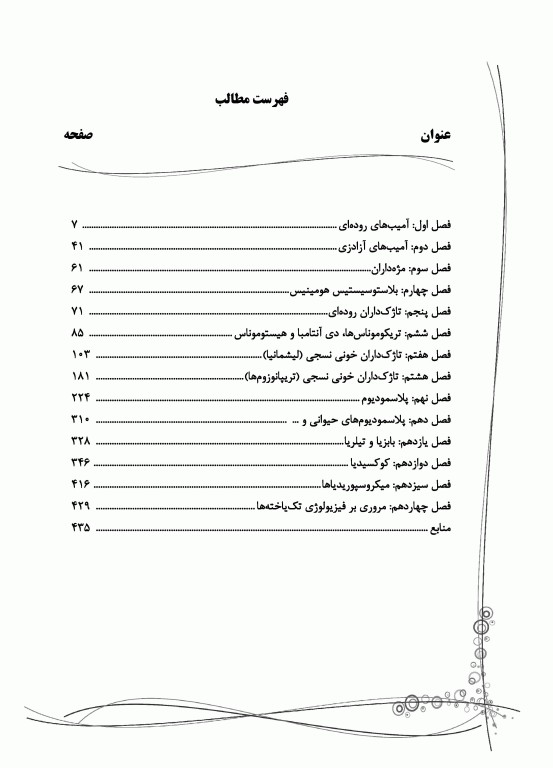 فهرست مطالب
عنوان صفحه
فصل اول: آمیب‌های روده‌ای ........ ۷
فصل دوم: آمیب‌های آزادزی ........ ۴۱
فصل سوم: مژه‌داران ........ ۶۱
فصل چهارم: بلاستوسیستیس هومینیس ........ ۶۷
فصل پنجم: تاژک‌داران روده‌ای ........ ۷۱
فصل ششم: تریکوموناس‌ها، دی آنتامبا و هیستوموناس ........ ۸۵
فصل هفتم: تاژک‌داران خونی نسجی (لیشمانیا) ........ ۱۰۳
فصل هشتم: تاژک‌داران خونی نسجی (تریپانوزوم‌ها) ........ ۱۸۱
فصل نهم: پلاسمودیوم ........ ۲۲۴
فصل دهم: پلاسمودیوم‌های حیوانی و ... ........ ۳۱۰
فصل یازدهم: بابزیا و تیلریا ........ ۳۲۸
فصل دوازدهم: کوکسیدیا ........ ۳۴۶
فصل سیزدهم: میکروسپوریدیاها ........ ۴۱۶
فصل چهاردهم: مروری بر فیزیولوژی تک‌یاخته‌ها ........ ۴۲۹
منابع ........ ۴۳۵